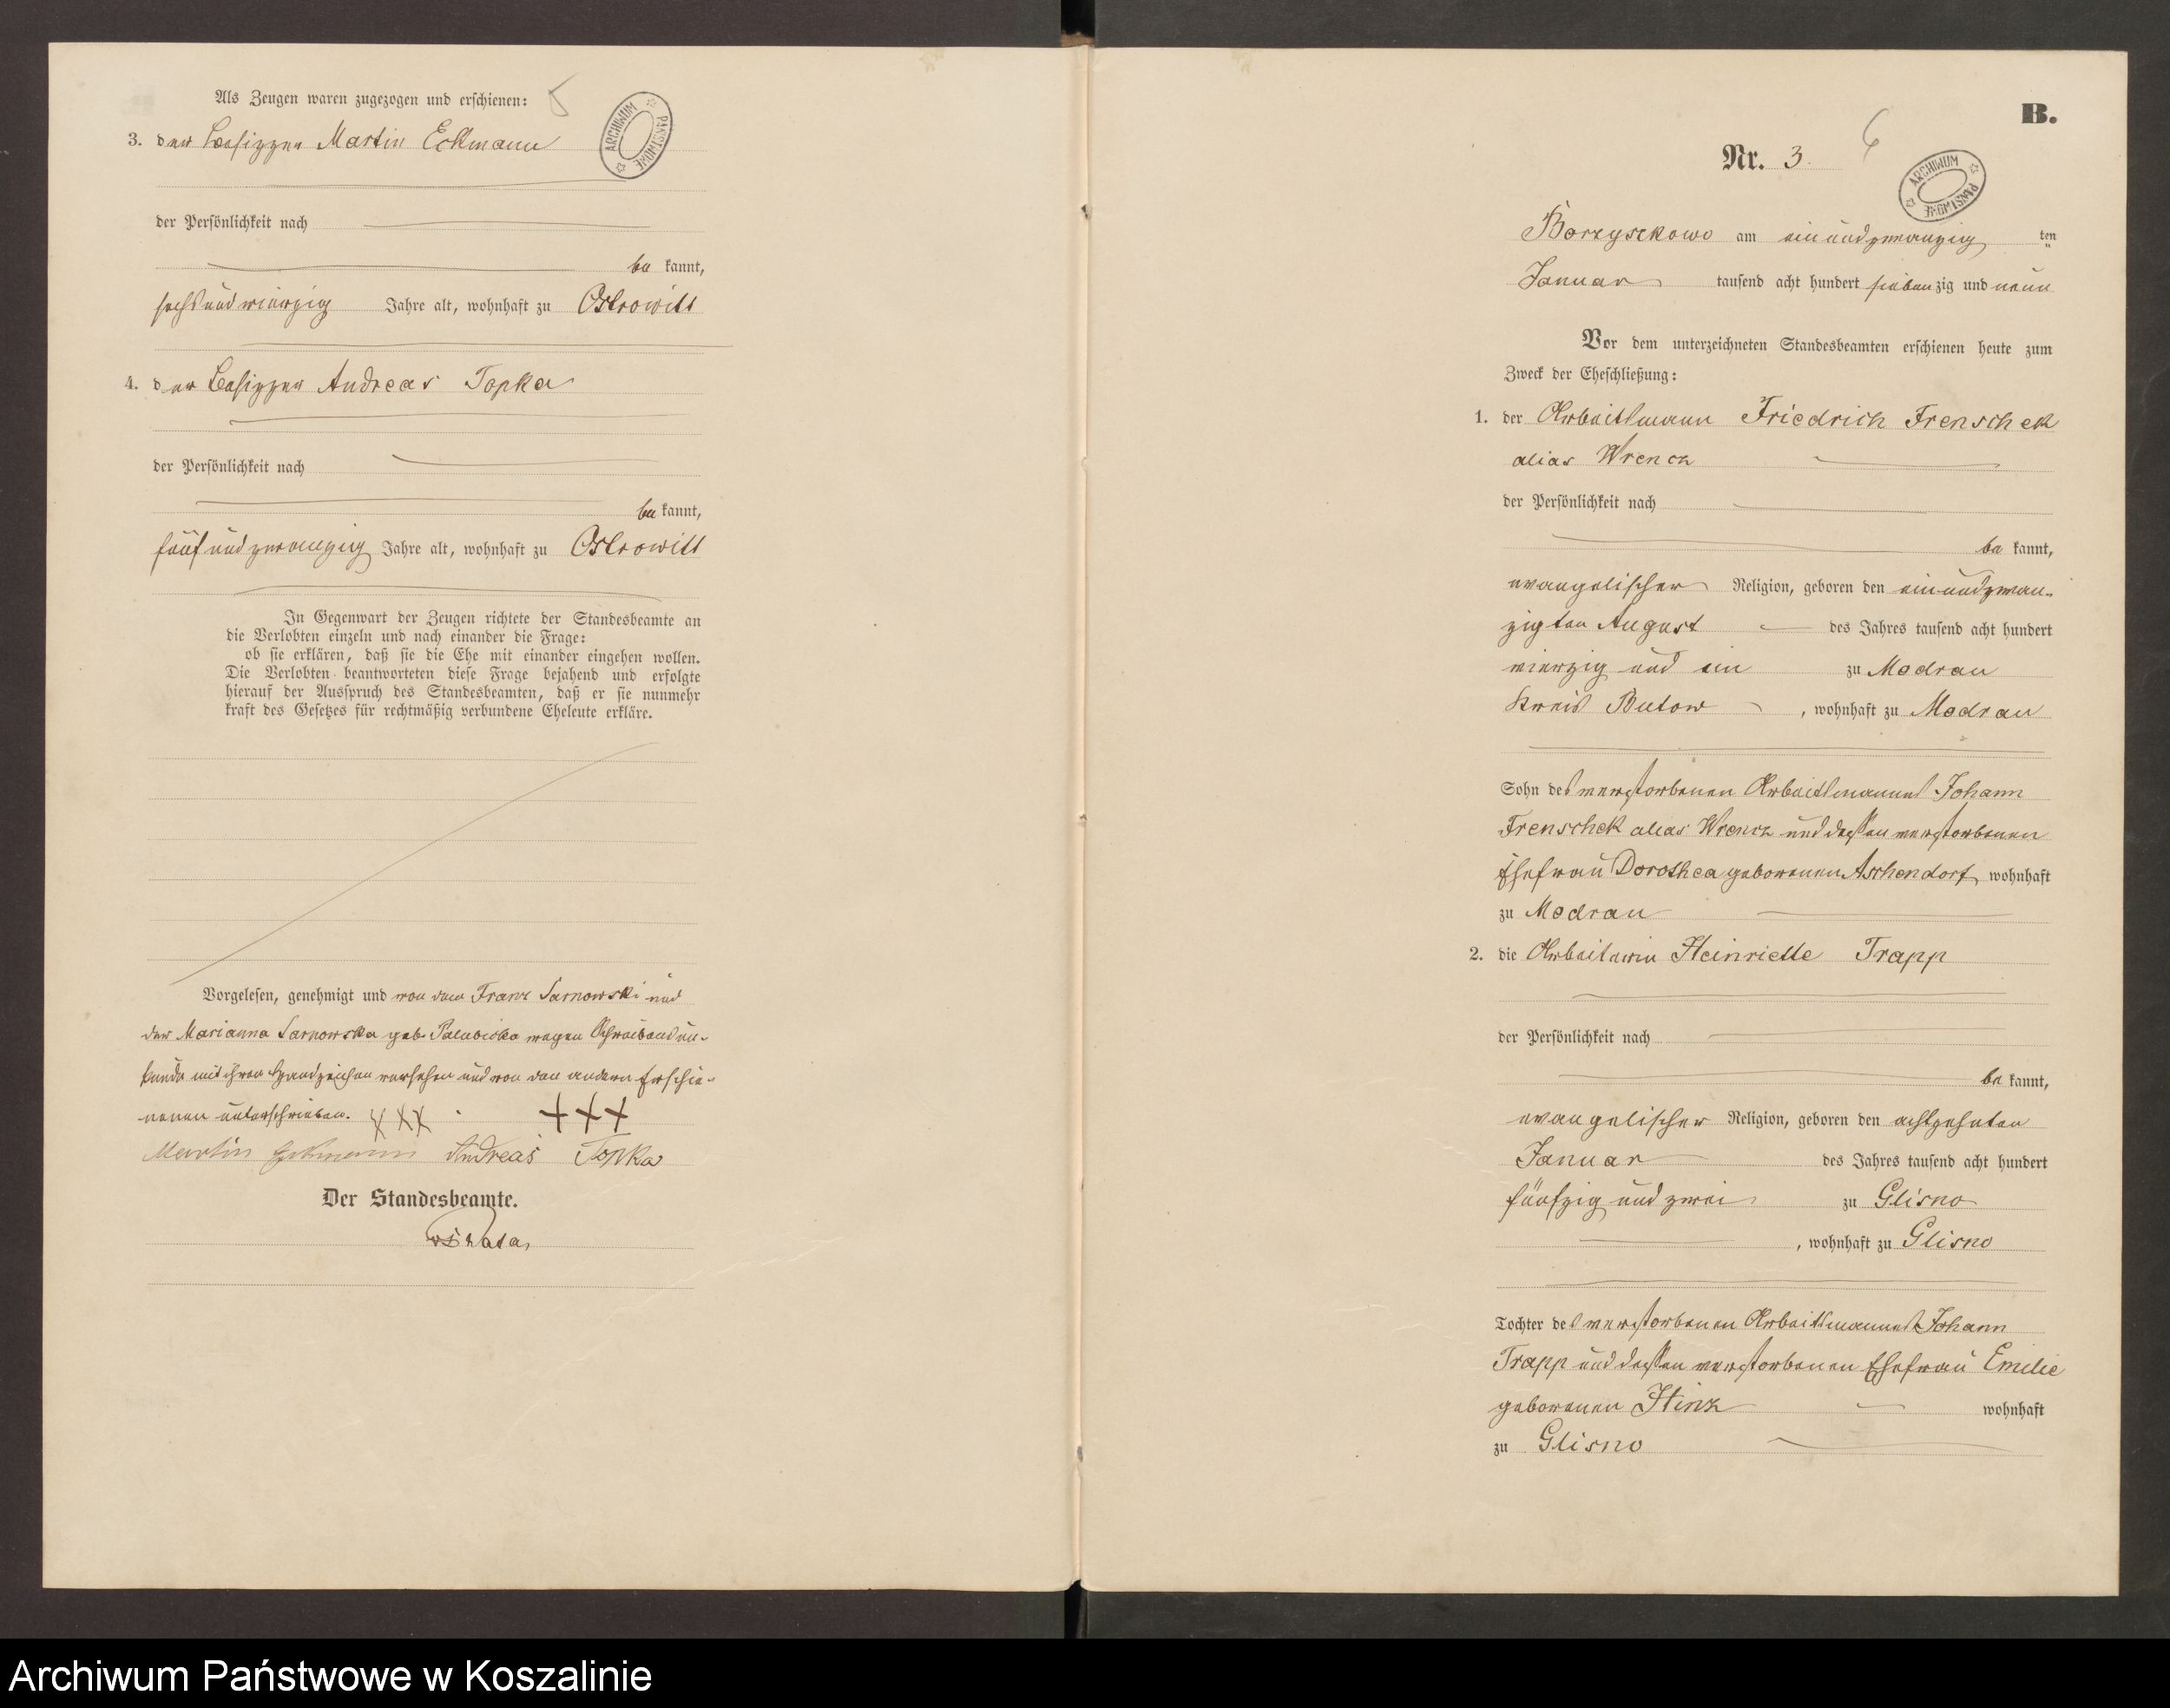 Als Zeugen waren zugezogen und erschienen:
3. der Besitzer Martin Eckmann
der Persönlichkeit nach
be kannt,
sechsundvierzig Jahre alt, wohnhaft zu Ostrowitt
4. der Besitzer Andreas Topka
der Persönlichkeit nach
be kannt,
fünfundzwanzig Jahre alt, wohnhaft zu Ostrowitt
In Gegenwart der Zeugen richtete der Standesbeamte an
die Verlobten einzeln und nach einander die Frage:
ob sie erklären, daß sie die Ehe mit einander eingehen wollen.
Die Verlobten beantworteten diese Frage bejahend und erfolgte
hierauf der Ausspruch des Standesbeamten, daß er sie nunmehr
kraft des Gesetzes für rechtmäßig verbundene Eheleute erkläre.
Vorgelesen, genehmigt und von dem Franz Sarnowski und
der Marianna Sarnowska geb. Palubicka wegen Schreibensun-
kunde mit ihren Handzeichen versehen und von den andern Erschie-
nenen unterschrieben. XXX +++
Martin Eckmann Andreas Topka
Der Standesbeamte.
ARCHIWUM PAŃSTWOWE
B.
Nr. 3.
ARCHIWUM PAŃSTWOWE
Borzyszkowo am einundzwanzig ten
Januar tausend acht hundert sieben zig und neun
Vor dem unterzeichneten Standesbeamten erschienen heute zum
Zweck der Eheschließung:
1. der Arbeitsmann Friedrich Frenschek
alias Wrencz
der Persönlichkeit nach
be kannt,
evangelischer Religion, geboren den einundzwan-
zigten August des Jahres tausend acht hundert
vierzig und ein zu Modrau
Kreis Butow, wohnhaft zu Modrau
Sohn des verstorbenen Arbeitsmannes Johann
Frenschek alias Wrencz und dessen verstorbenen
Ehefrau Dorothea geborenen Aschendorf, wohnhaft
zu Modrau
2. die Arbeiterin Heinriette Trapp
der Persönlichkeit nach
be kannt,
evangelischer Religion, geboren den achtzehnten
Januar des Jahres tausend acht hundert
fünfzig und zwei zu Glisno
, wohnhaft zu Glisno
Tochter des verstorbenen Arbeitsmannes Johann
Trapp und dessen verstorbenen Ehefrau Emilie
geborenen Hinz wohnhaft
zu Glisno
Archiwum Państwowe w Koszalinie